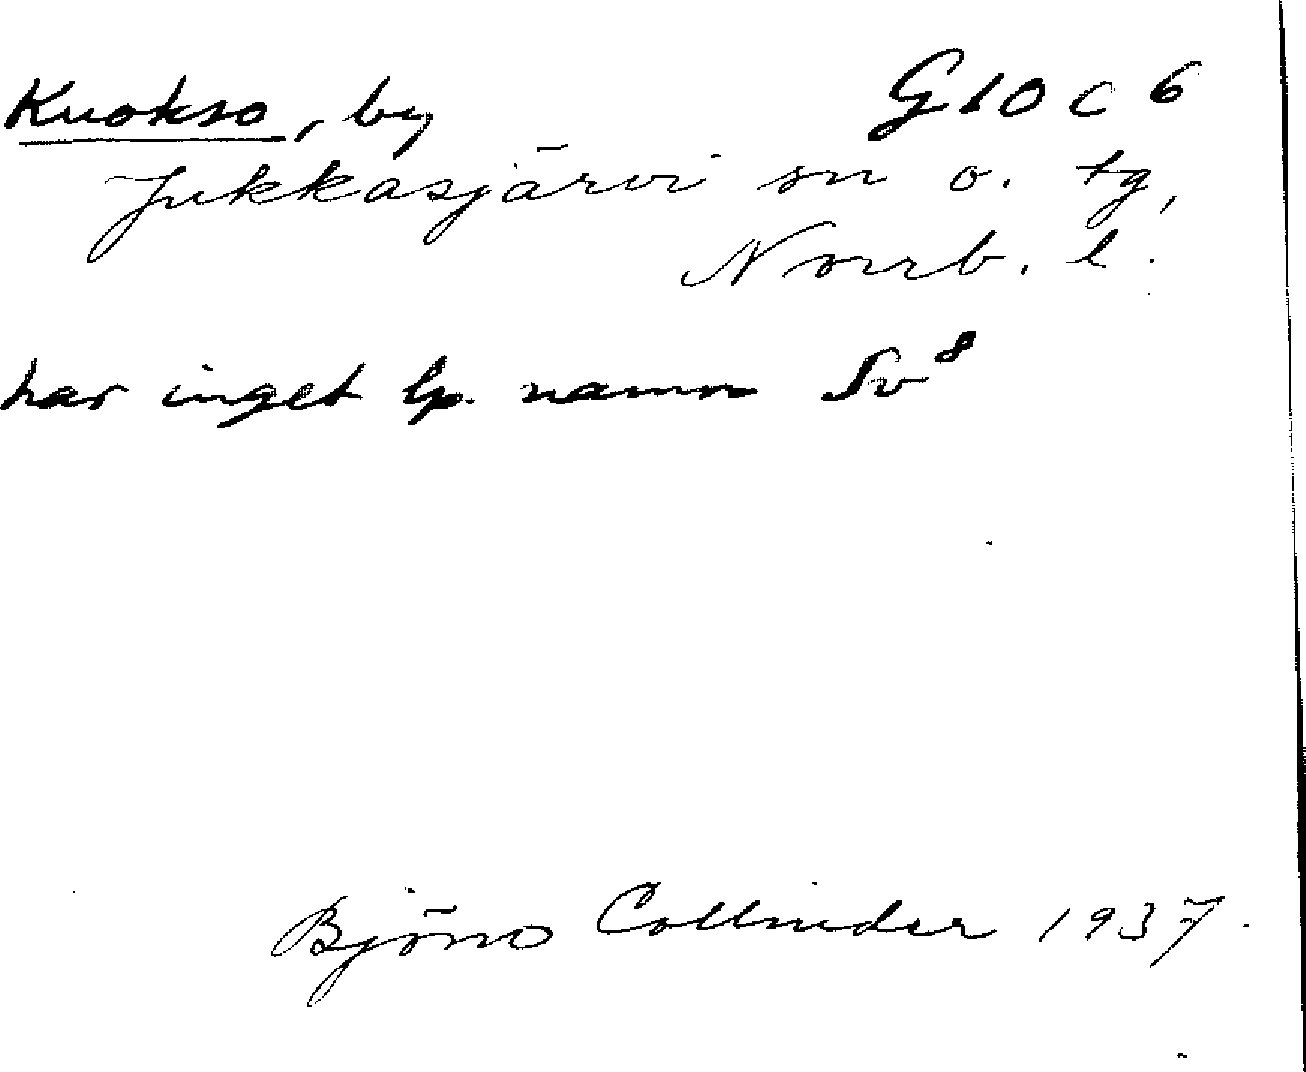 Kuokso, by G10 c 6
Jukkasjärvi sn o. tg,
Norrb. l.
har inget lp. namn Sv⁸
Björn Collinder 1937.